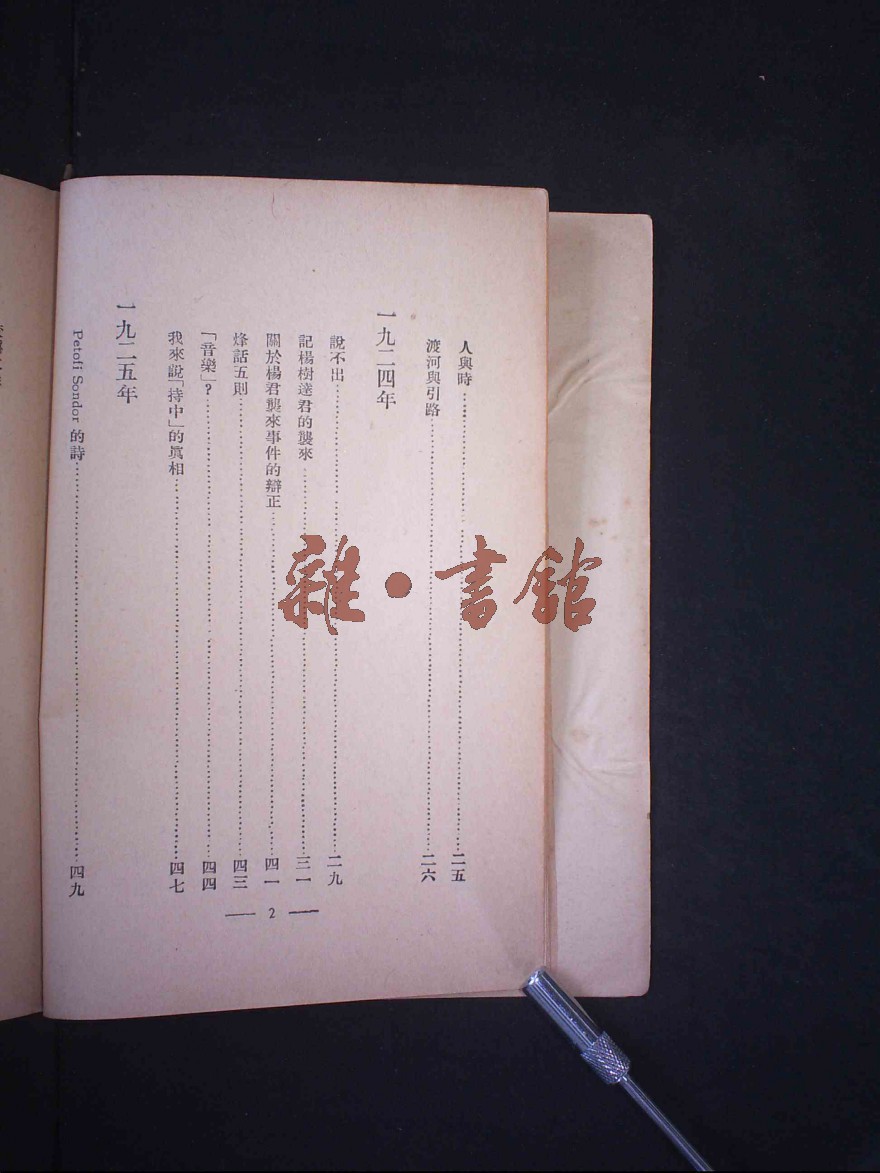 人與時……二五
渡河與引路……二六
一九二四年
說不出……二九
記楊樹達君的襲來……三一
關於楊君襲來事件的辯正……四一
烽話五則……四三
「音樂」?……四四
我來說「持中」的眞相……四七
一九二五年
Petofi Sondor 的詩……四九
— 2 —
雜·書館